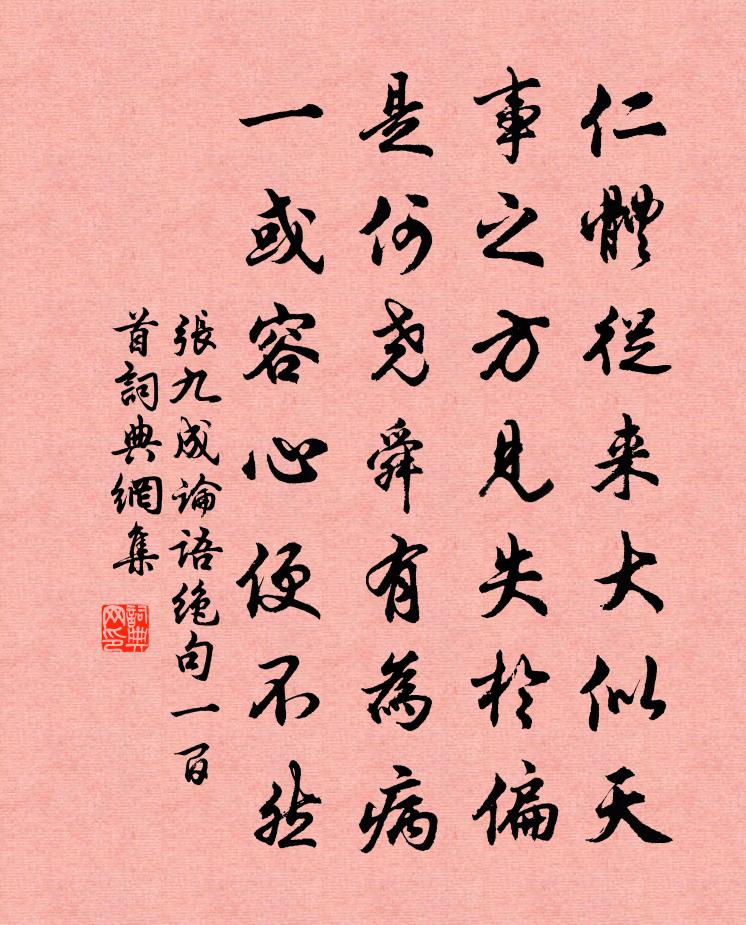 仁體從来大似天
事之方見失於偏
是何尧舜有為病
一或容心便不然
張九成论语绝句一百
首詞典網集
詞典網印